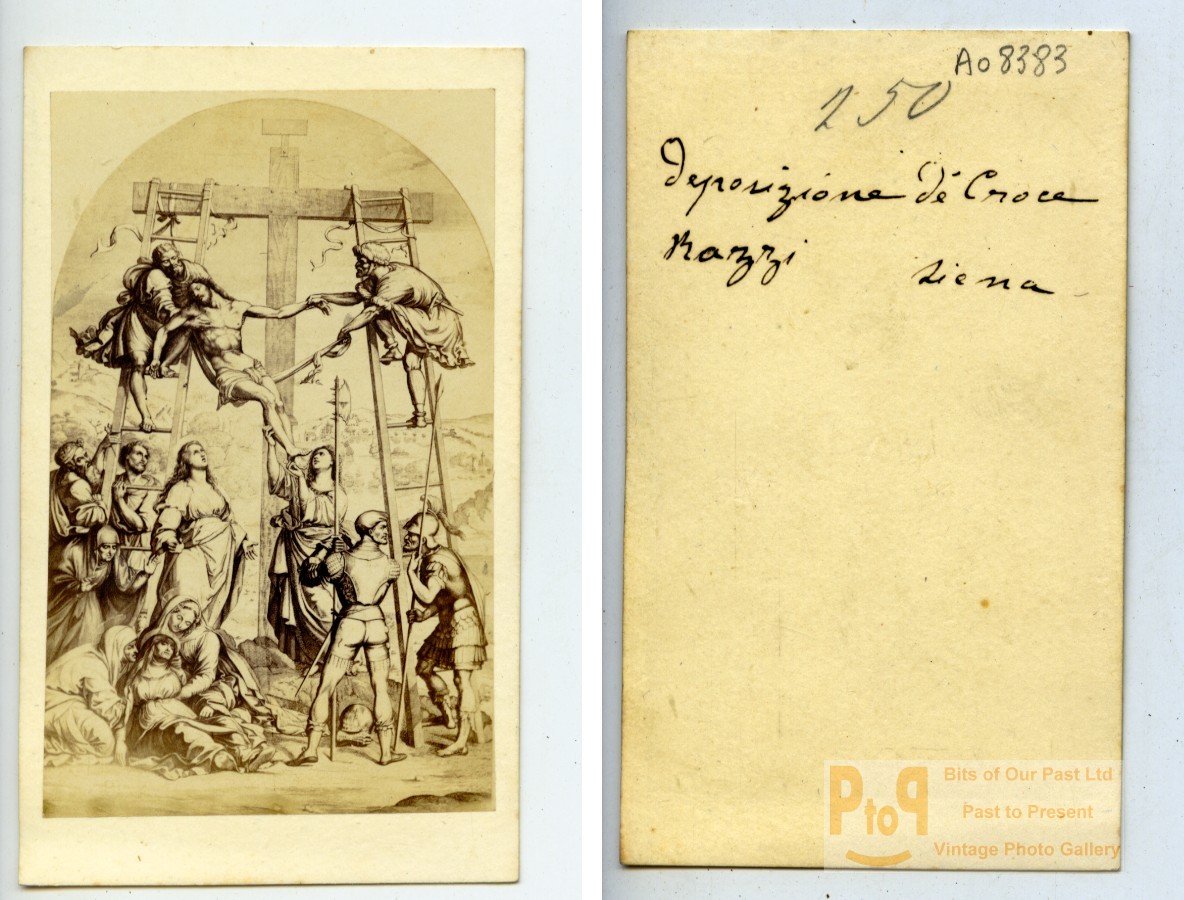 Ao 8383
250
Deposizione de Croce
Razzi Siena
PtoP
Bits of Our Past Ltd
Past to Present
Vintage Photo Gallery